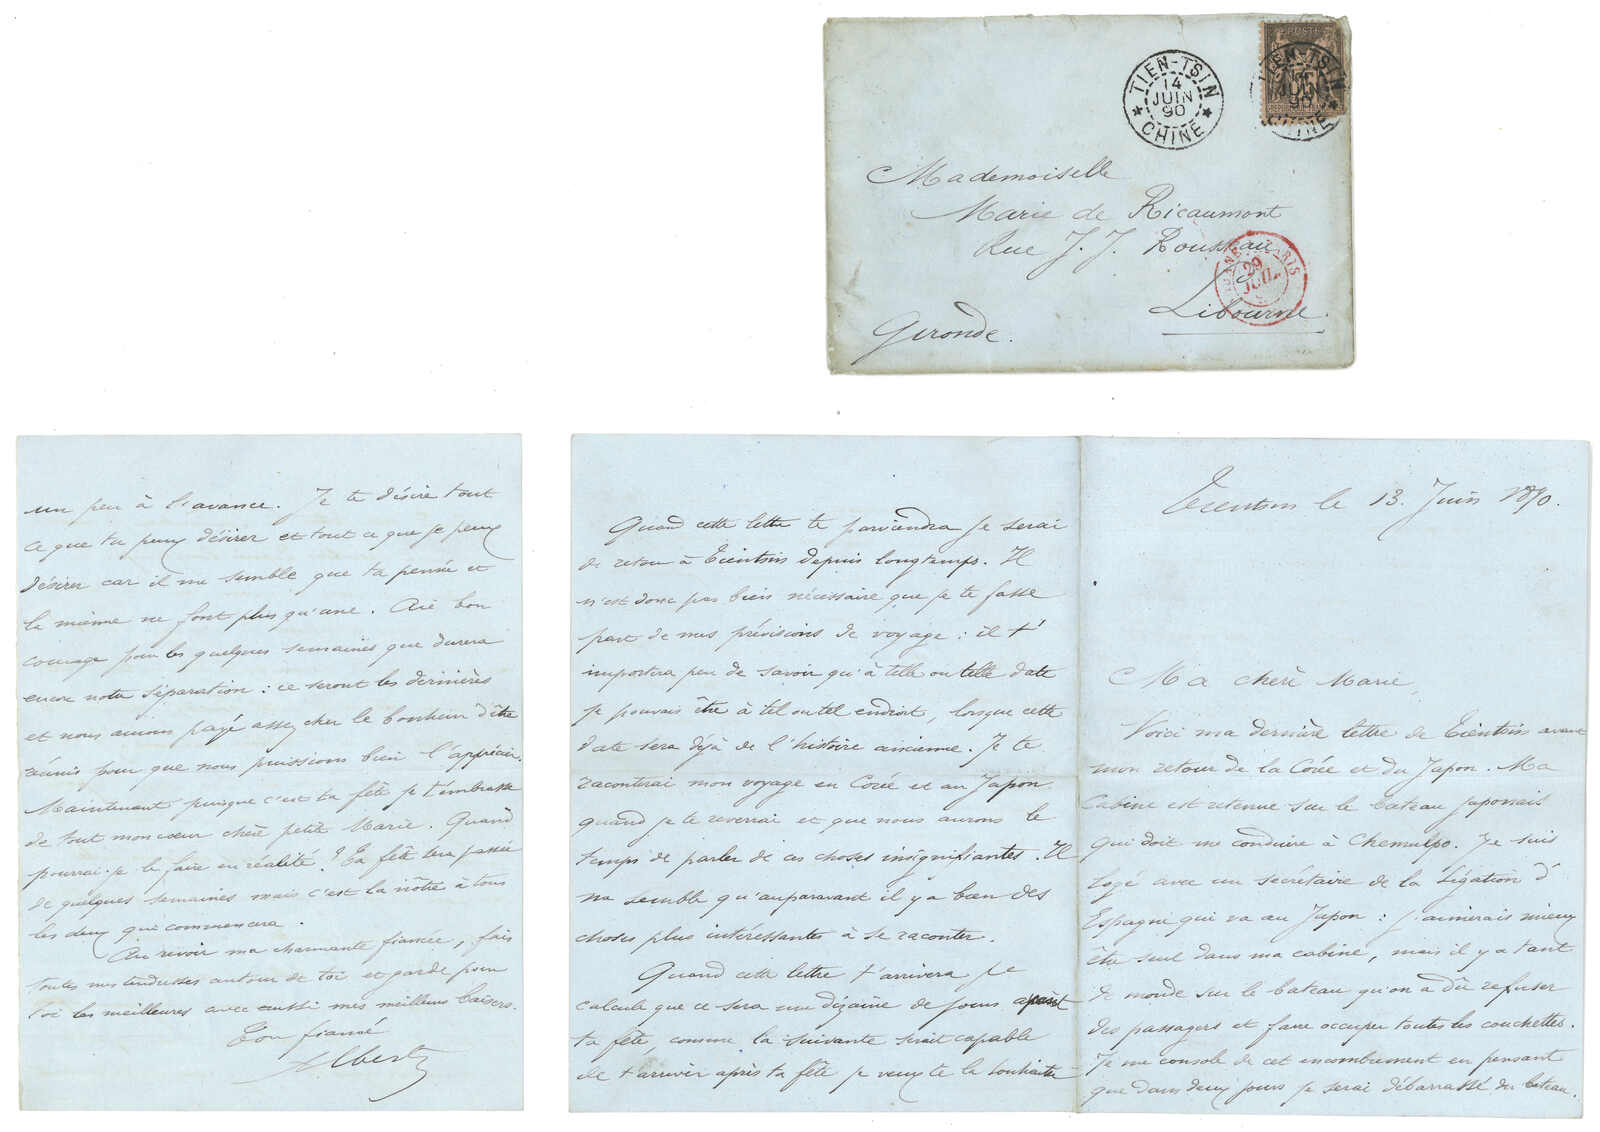 TIEN-TSIN
14
JUIN
90
CHINE
POSTE
TIEN-TSIN
JUIN
90
CHINE
Mademoiselle
Marie de Ricaumont
Rue J. J. Rousseau
Libourne.
Gironde.
PARIS
29
JUIL
Tientsin le 13 Juin 1890.
Ma chère Marie,
Voici ma dernière lettre de Tientsin avant
mon retour de la Corée et du Japon. Ma
cabine est retenue sur le bateau japonais
qui doit me conduire à Chemulpo. Je suis
logé avec un secrétaire de la Légation d'
Espagne qui va au Japon : j'aimerais mieux
être seul dans ma cabine, mais il y a tant
de monde sur le bateau qu'on a dû refuser
des passagers et faire occuper toutes les couchettes.
Je me console de cet encombrement en pensant
que dans deux jours je serai débarrassé du bateau.
Quand cette lettre te parviendra je serai
de retour à Tientsin depuis longtemps. Il
n'est donc pas bien nécessaire que je te fasse
part de mes prévisions de voyage : il t'
importera peu de savoir qu'à telle ou telle date
je pouvais être à tel ou tel endroit, lorsque cette
date sera déjà de l'histoire ancienne. Je te
raconterai mon voyage en Corée et au Japon
quand je te reverrai et que nous aurons le
temps de parler de ces choses insignifiantes. Il
me semble qu'auparavant il y a bien des
choses plus intéressantes à se raconter.
Quand cette lettre t'arrivera je
calcule que ce sera une dizaine de jours avant
ta fête, comme la suivante serait capable
de t'arriver après ta fête je veux te la souhaiter
un peu à l'avance. Je te désire tout
ce que tu peux désirer et tout ce que je peux
désirer car il me semble que ta pensée et
la mienne ne font plus qu'une. Aie bon
courage pour les quelques semaines que durera
encore notre séparation : ce seront les dernières
et nous aurons payé assez cher le bonheur d'être
réunis pour que nous puissions bien l'apprécier.
Maintenant puisque c'est ta fête je t'embrasse
de tout mon cœur chère petite Marie. Quand
pourrai-je le faire en réalité ? Ta fête sera passée
de quelques semaines mais c'est la nôtre à tous
les deux qui commencera.
Au revoir ma charmante fiancée, fais
toutes mes tendresses autour de toi et garde pour
toi les meilleures avec aussi mes meilleurs baisers.
Ton fiancé
Albert